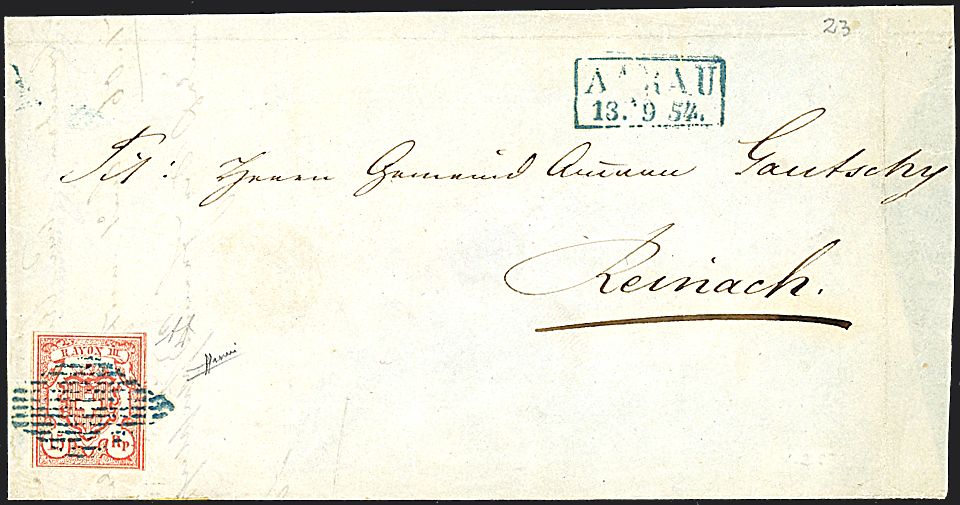 23
AARAU
13. 9 54.
Tit: Herrn Gemeind Ammann Gautschy
Reinach.
RAYON III
15 Rp